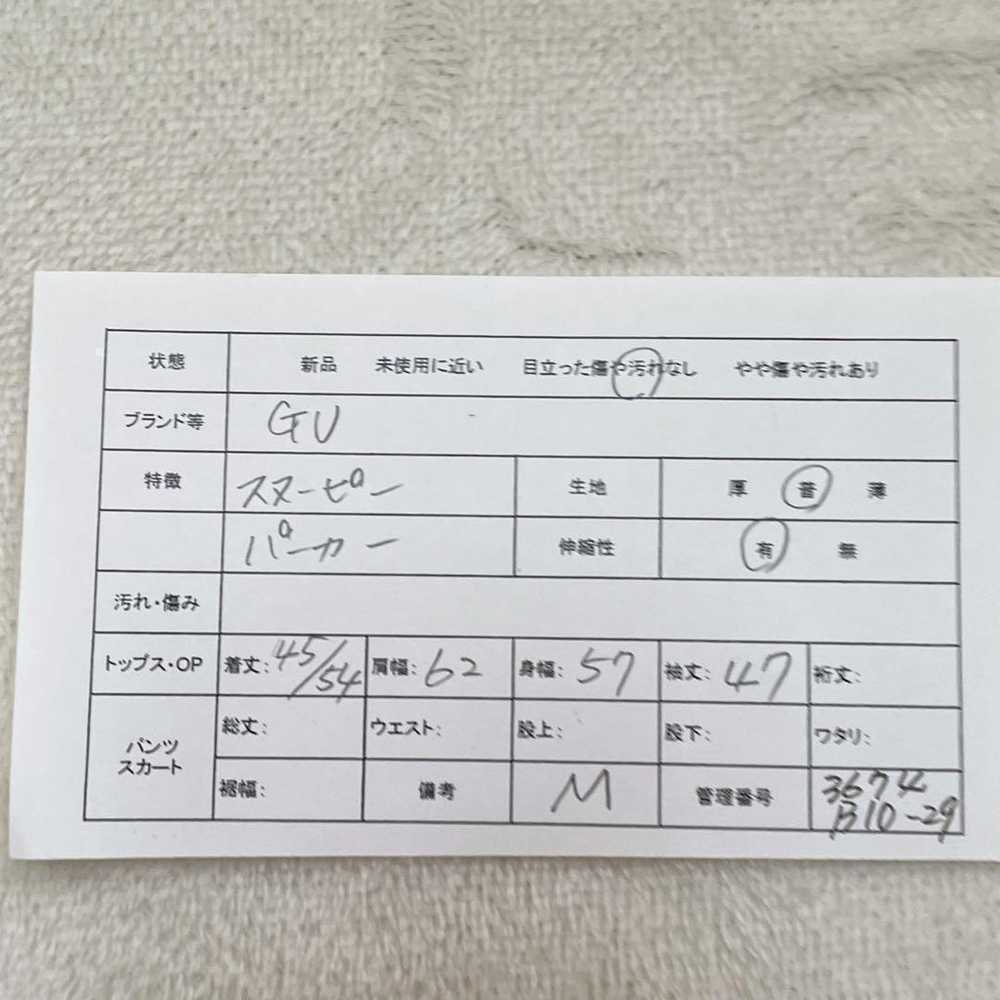 状態 新品 未使用に近い 目立った傷や汚れなし やや傷や汚れあり
ブランド等 GU
特徴 スヌーピー 生地 厚 普 薄
パーカー 伸縮性 有 無
汚れ・傷み
トップス・OP 着丈: 45/54 肩幅: 62 身幅: 57 袖丈: 47 裄丈:
パンツ スカート 総丈: ウエスト: 股上: 股下: ワタリ:
裾幅: 備考 M 管理番号 3674
B10-29